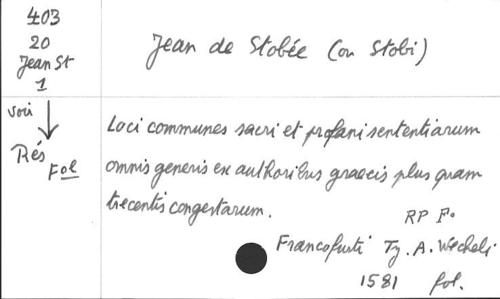 403
20
Jean St
1
Jean de Stobée (ou Stobi)
voir
Rés
Fol
Loci communes sacri et profani sententiarum
omnis generis ex authoribus graecis plus quam
trecentis congestarum.
RP F.
Francofurti Ty. A. Wecheli
1581 fol.